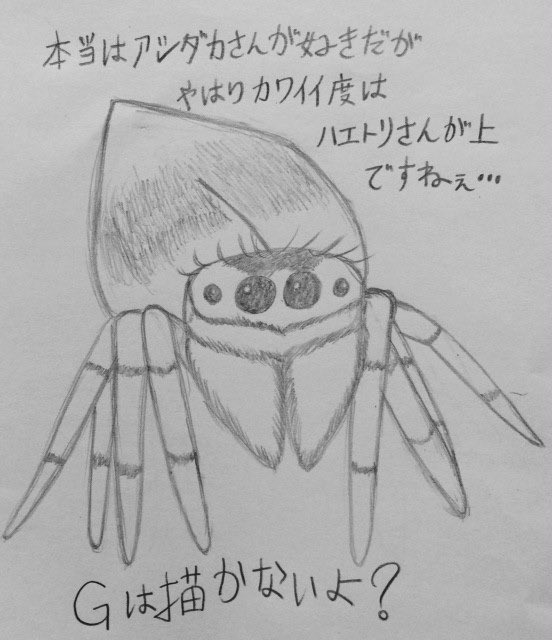 本当はアシダカさんが好きだが
やはりカワイイ度は
ハエトリさんが上
ですねぇ…
Gは描かないよ?